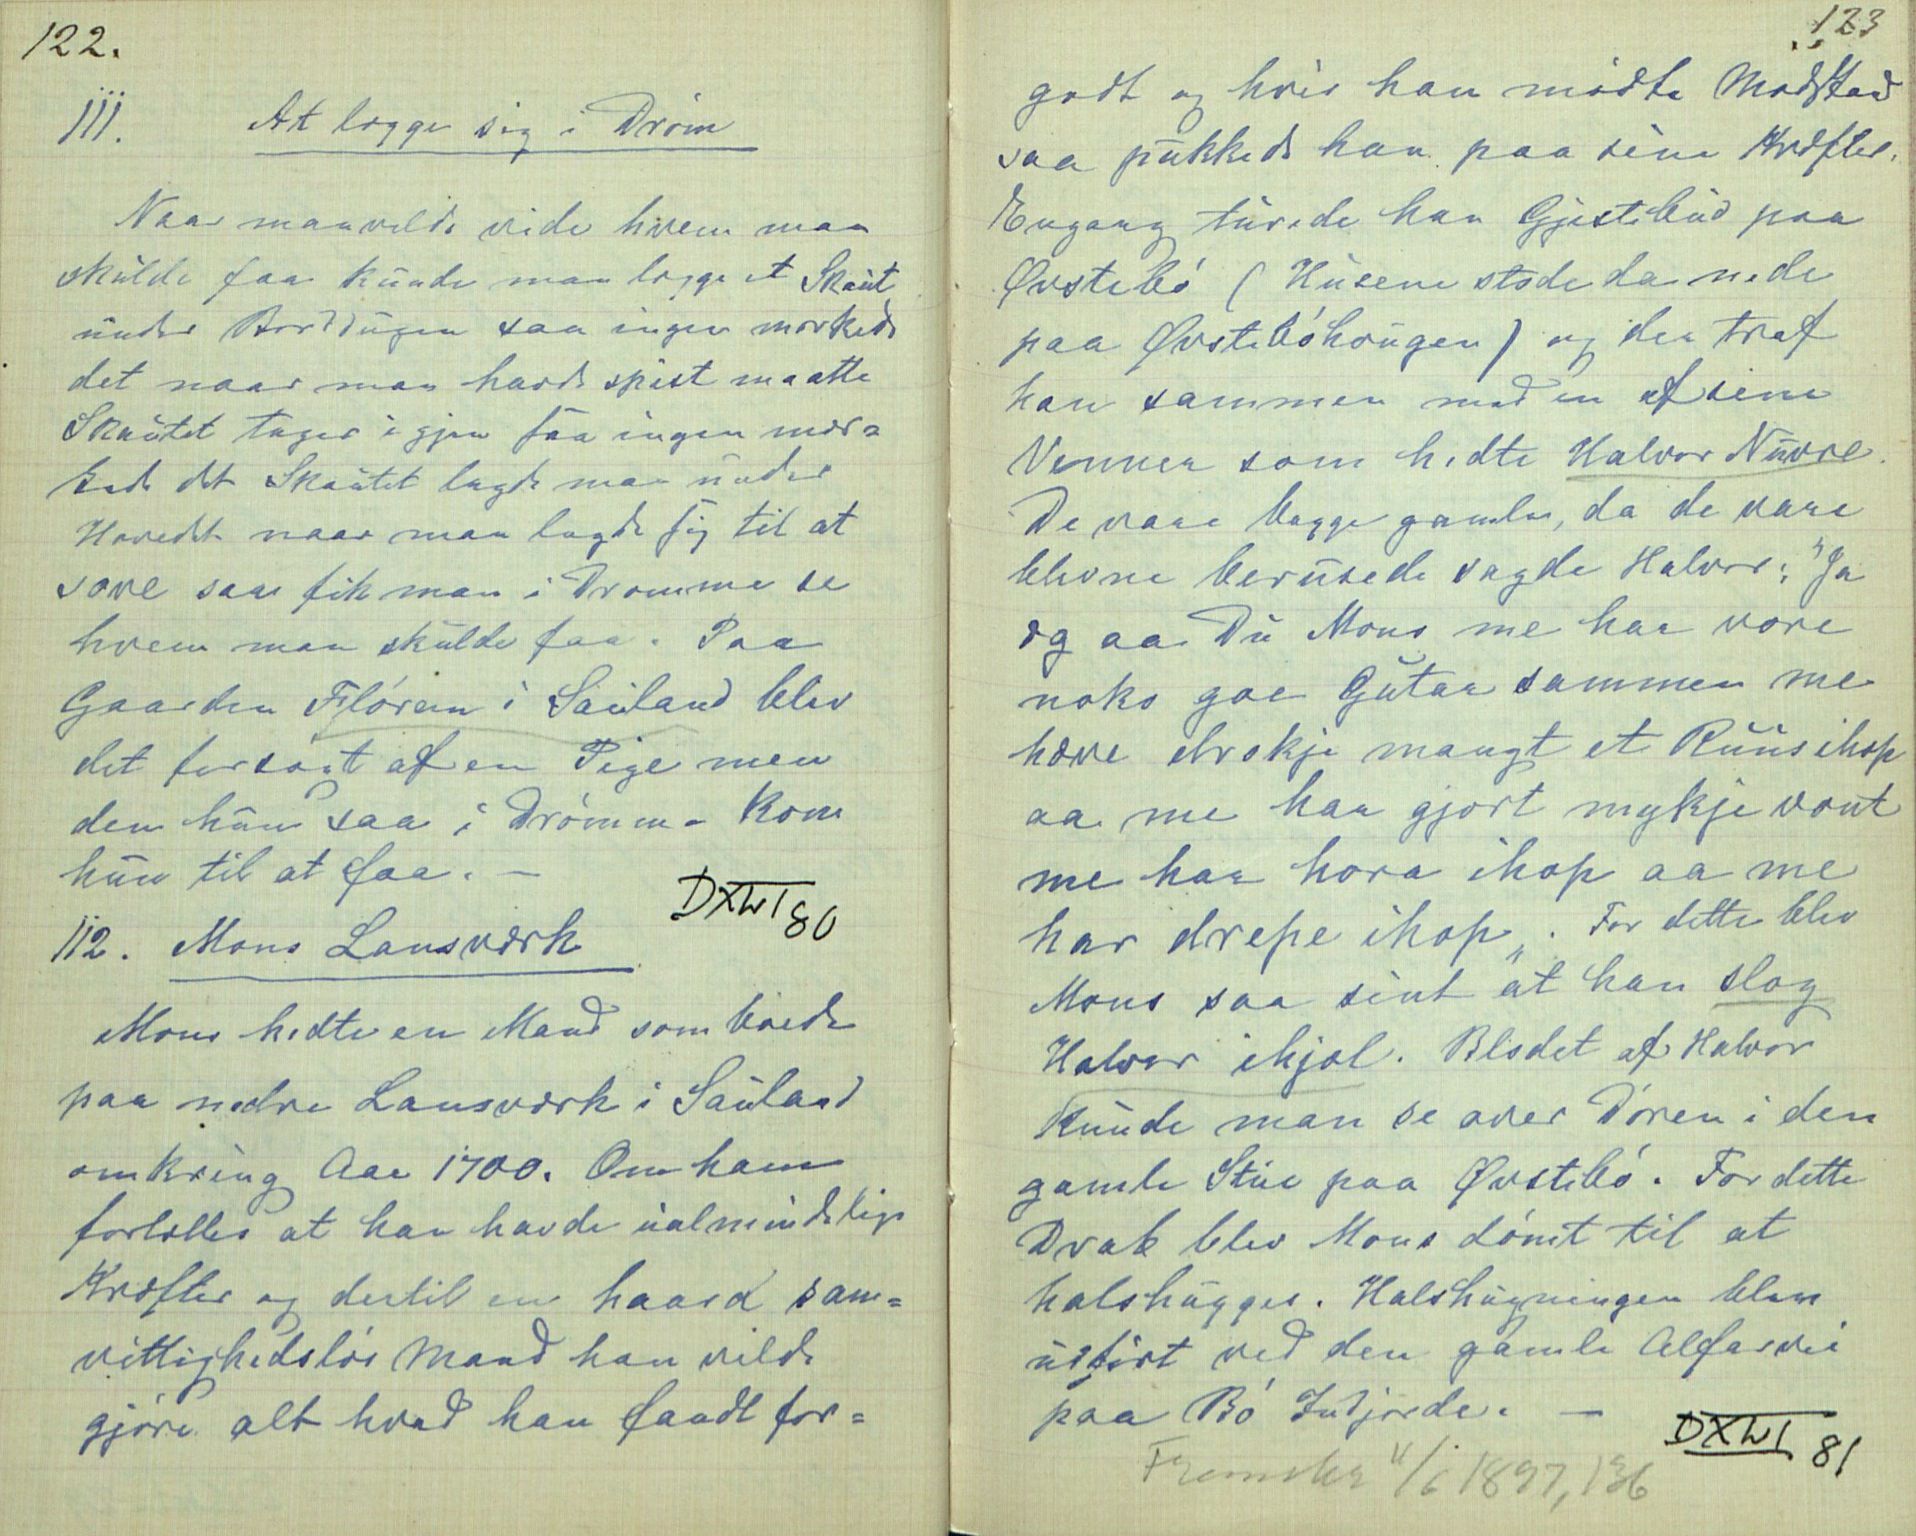 122.
111. At lægge sig i Drøm
Naar man vilde vide hvem man
skulde faa kunde man lægge et Skaut
under Borddugen saa ingen mærkede
det naar man havde spist maatte
Skautet tages igjen saa ingen mær=
kede det Skautet lagde man under
Hovedet naar man lagde sig til at
sove saa fik man i Drømme se
hvem man skulde faa. Paa
Gaarden Flóren i Sauland blev
det forsøgt af en Pige men
den hun saa i Drømme kom
hun til at faa. —
DXLVI 80
112. Mons Lansværk
Mons hedte en Mand som boede
paa nedre Lansværk i Sauland
omkring Aar 1700. Om ham
fortælles at han havde ualmindelige
Kræfter og dertil en haard sam=
vittighedsløs Mand han vilde
gjøre alt hvad han fandt for=
123
godt og hvis han mødte Modstand
saa pukkede han paa sine Kræfter.
Engang turede han Gjestebud paa
Øvstebó (Husene stode da nede
paa Øvstebóhougen) og der traf
han sammen med en af sine
Venner som hedte Halvor Nuvre.
De vare begge gamle, da de vare
blevne berusede sagde Halvor: "Ja
og aa Du Mons me haa vore
noko goe Gutar sammen me
hæve drokje mangt et Ruus ihop
aa me haa gjort mykje vont
me haa hora ihop aa me
har drepe ihop". For dette blev
Mons saa sint at han slog
Halvor ihjæl. Blodet af Halvor
kunde man se over Døren i den
gamle Stue paa Øvstebó. For dette
Drab blev Mons dømt til at
halshugges. Halshugningen blev
udført ved den gamle Alfarvei
paa Bó Indjorde. —
DXLVI 81
Fremskr 4/6 1897, 136